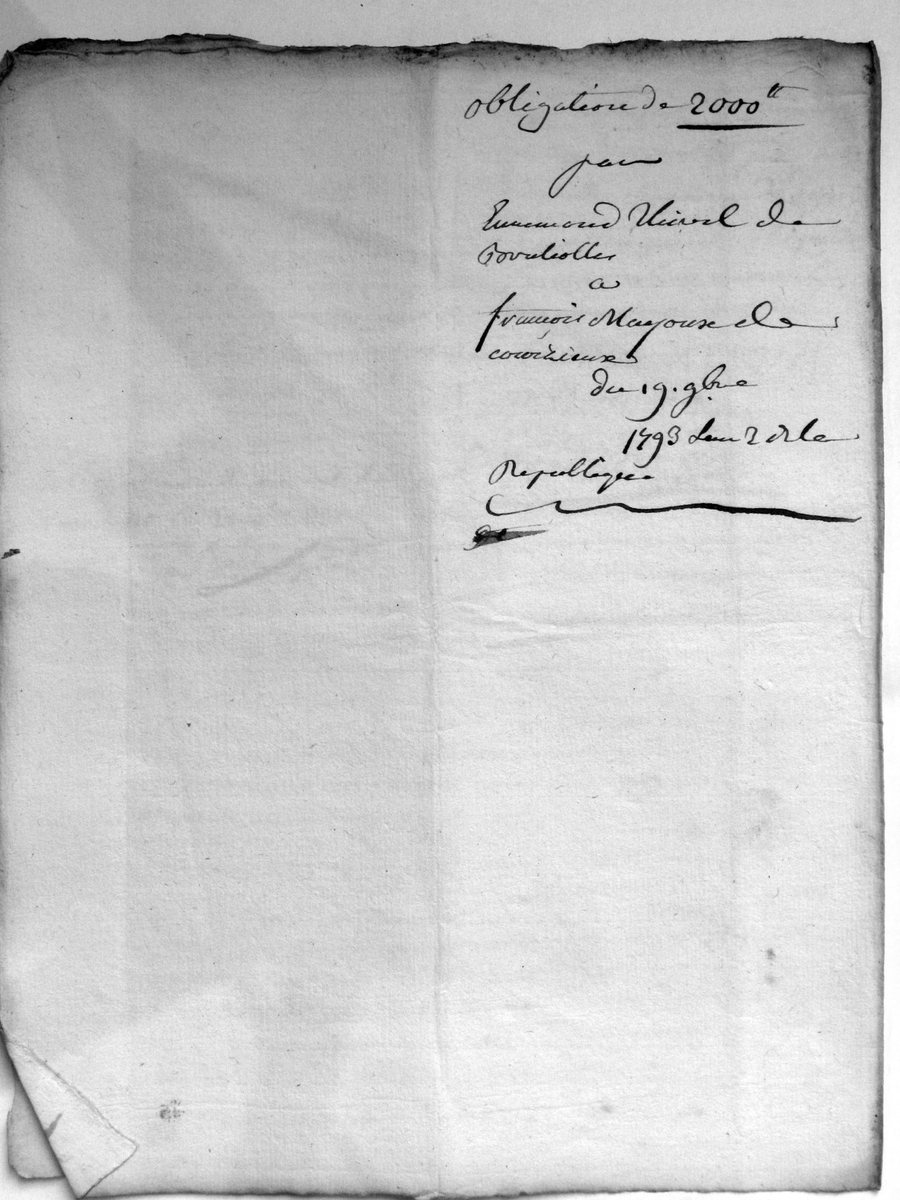 obligation de 2000ₗₜ
par
Ennemond de
a
françois Mayoux de
courzieux
du 19. 9bre
1793 Lan 2 de la
Republique